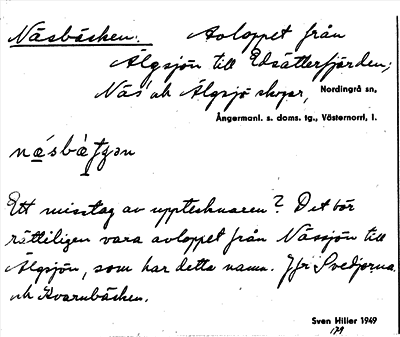 Näsbäcken. Avloppet från
Älgsjön till Edsätterfjärden;
Näs' och Älgsjö skogar, Nordingrå sn,
Ångermanl. s. doms. tg., Västernorrl. l.
Ett misstag av upptecknaren? Det bör
rätteligen vara avloppet från Nässjön till
Älgsjön, som har detta namn. Jfr Svedjorna
och Kvarnbäcken.
Sven Hiller 1949
179